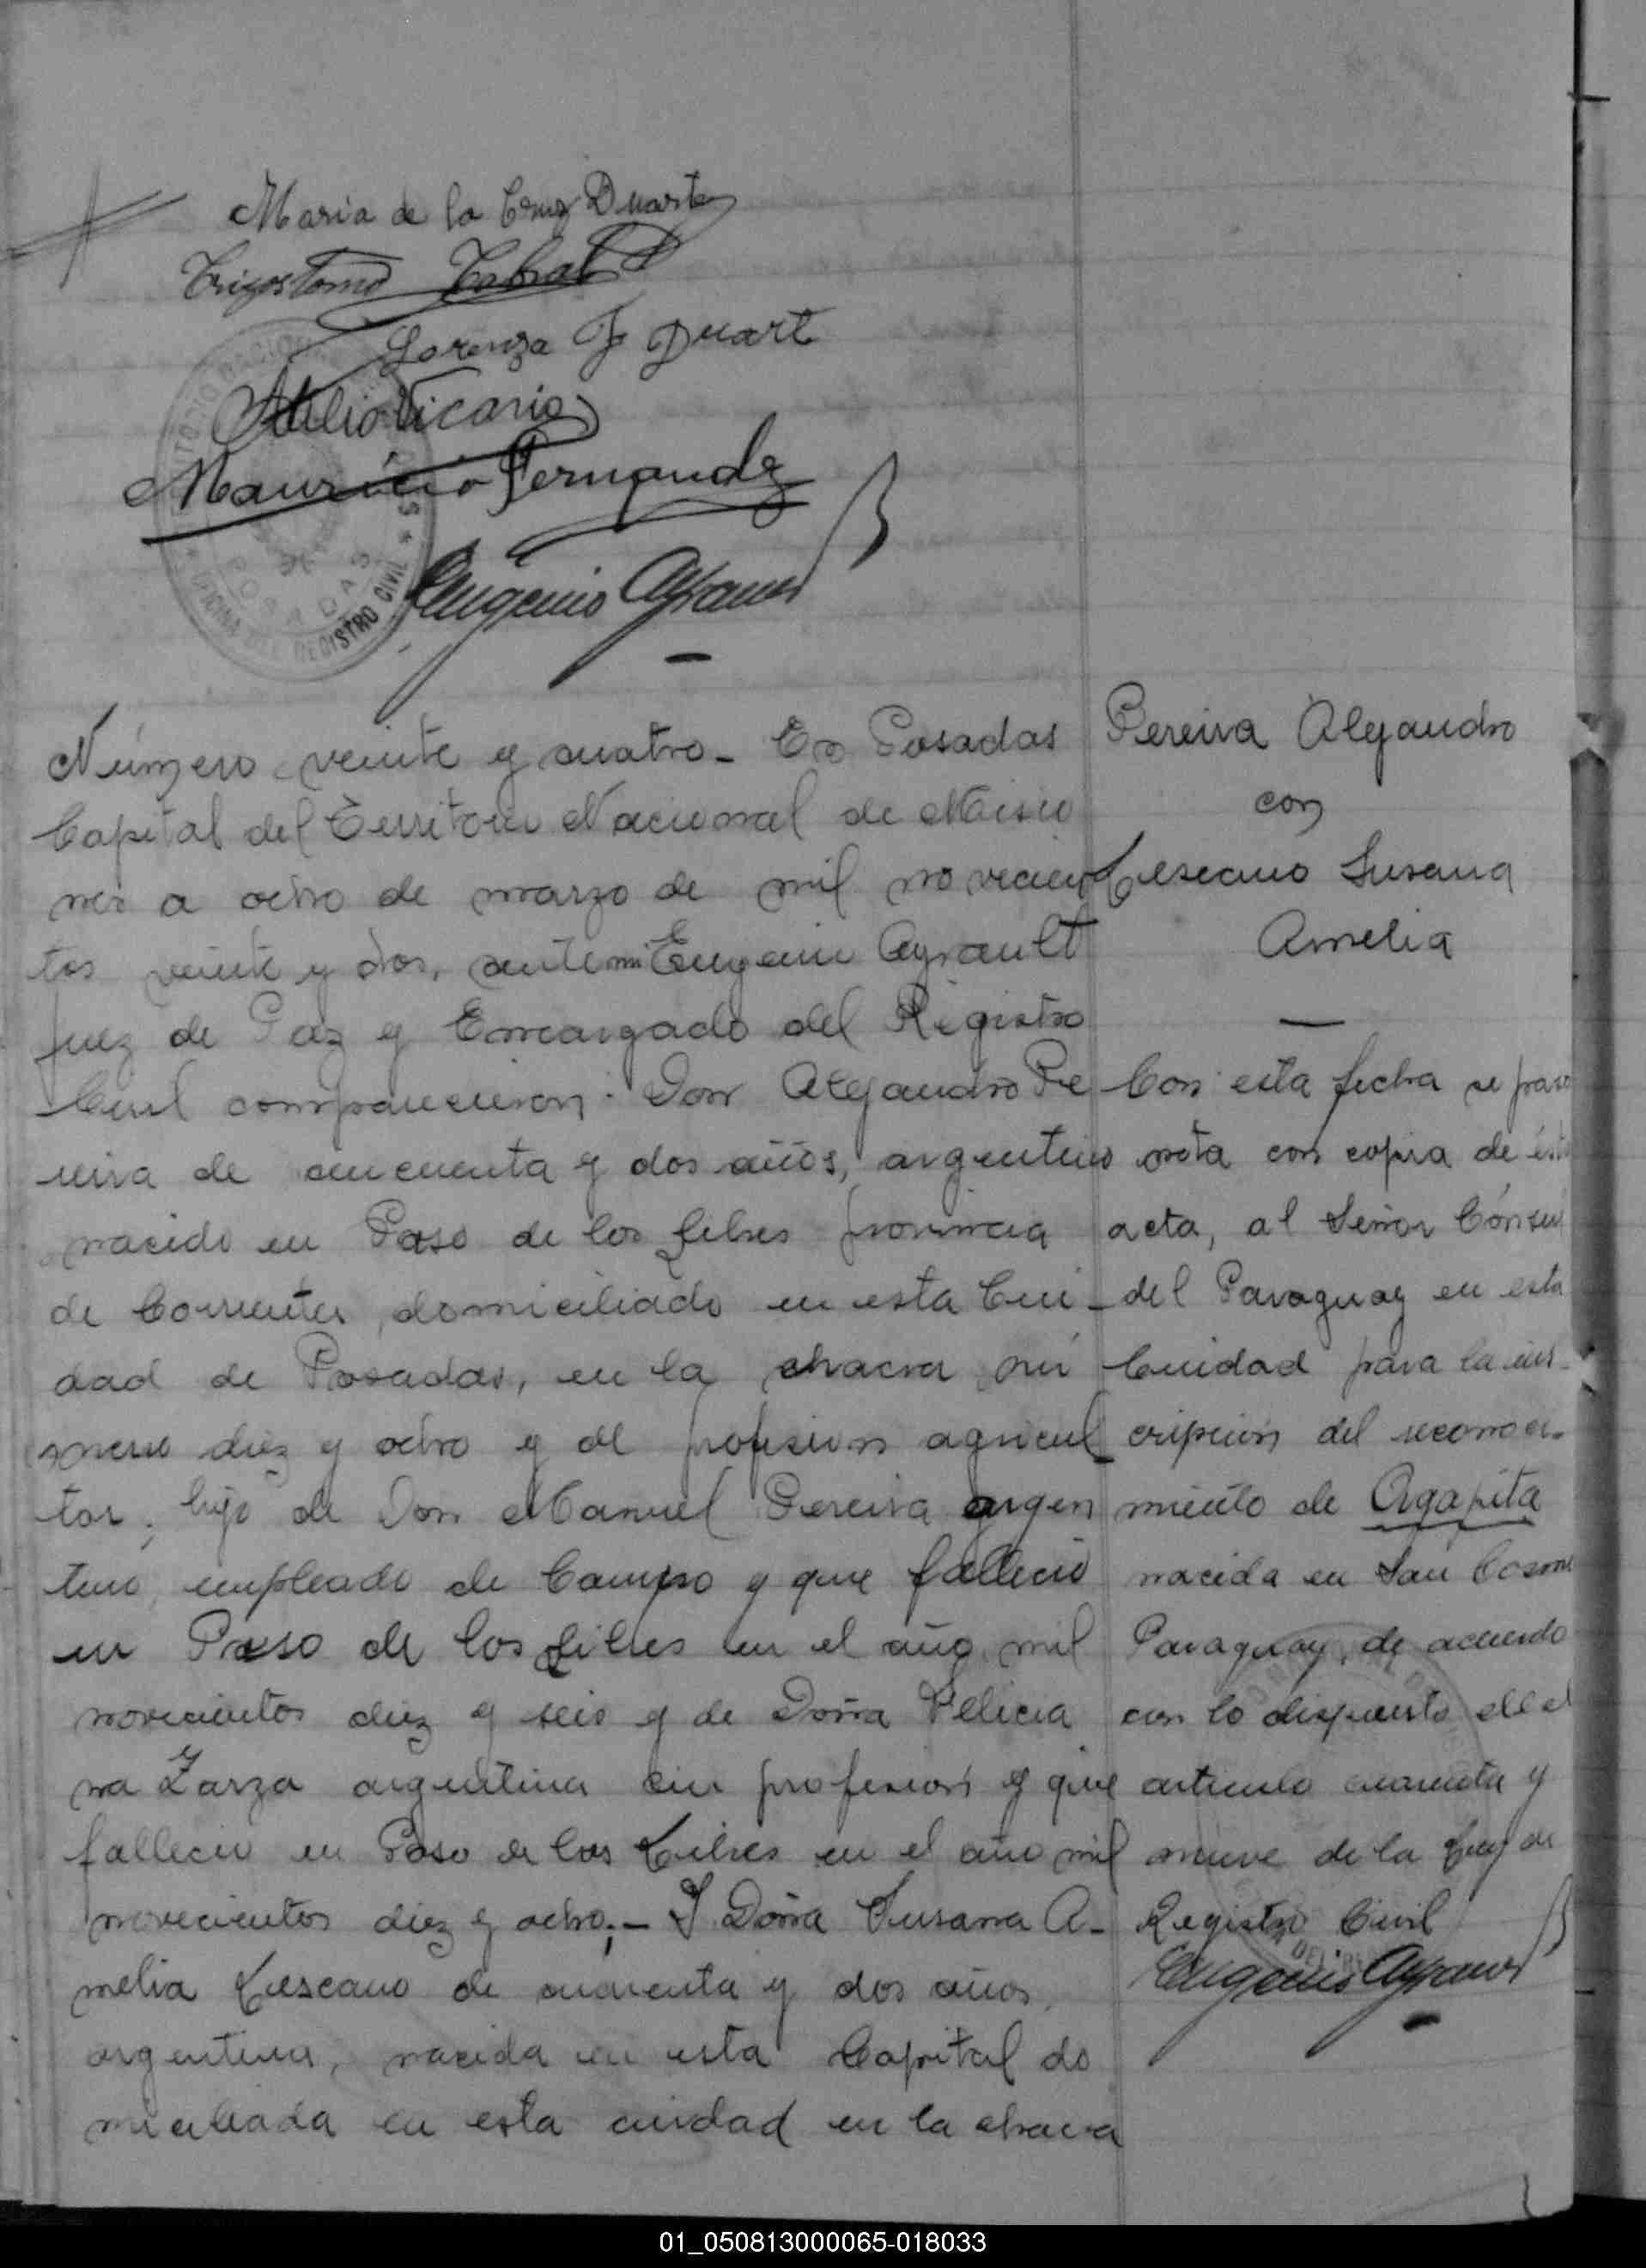 Maria de la Cruz Duarte
Crizostomo Cabral
Lorenza F Duarte
Atilio Vicario
Mauricio Fernandez
Eugenio Ayrault
POSADAS
OFICINA DEL REGISTRO CIVIL
Número veinte y cuatro_ En Posadas
Capital del Territorio Nacional de Misio
nes a ocho de marzo de mil novecien
tos veinte y dos, ante mi Eugenio Ayrault
Juez de Paz y Encargado del Registro
Civil comparecieron: Don Alejandro Pe
reira de cincuenta y dos años, argentino
nacido en Paso de los Libres provincia
de Corrientes, domiciliado en esta Ciu_
dad de Posadas, en la chacra nú
mero diez y ocho y de profesion agricul_
tor, hijo de Don Manuel Pereira argen
tino, empleado de Campo y que falleció
en Paso de los Libres en el año mil
novecientos diez y seis y de Doña Felicia
na Zarza argentina sin profesion y que
fallecio en Paso de los Libres en el año mil
novecientos diez y ocho;_ Y Doña Susana A_
melia Lescano de cuarenta y dos años,
argentina, nacida en esta Capital do
miciliada en esta ciudad en la chacra
Pereira Alejandro
con
Lescano Susana
Amelia
Con esta fecha se paso
nota con copia de ésta
acta, al Señor Cónsul
del Paraguay en esta
Ciudad para la ins_
cripción del reconoci_
miento de Agapita
nacida en San Cosme
Paraguay, de acuerdo
con lo dispuesto el
articulo cuarenta y
nueve de la Ley de
Registro Civil
Eugenio Ayrault
01_050813000065-018033